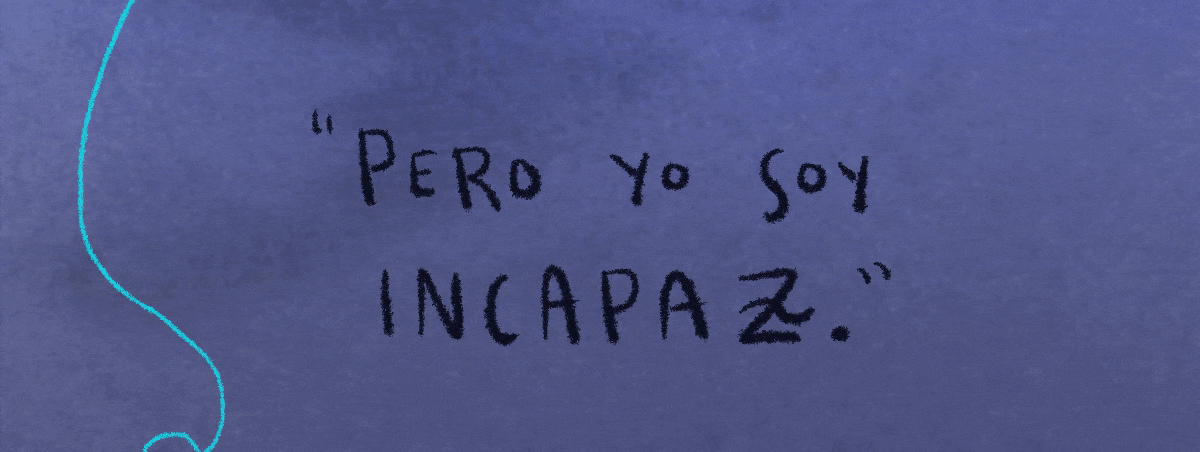 "PERO YO SOY
INCAPAZ."